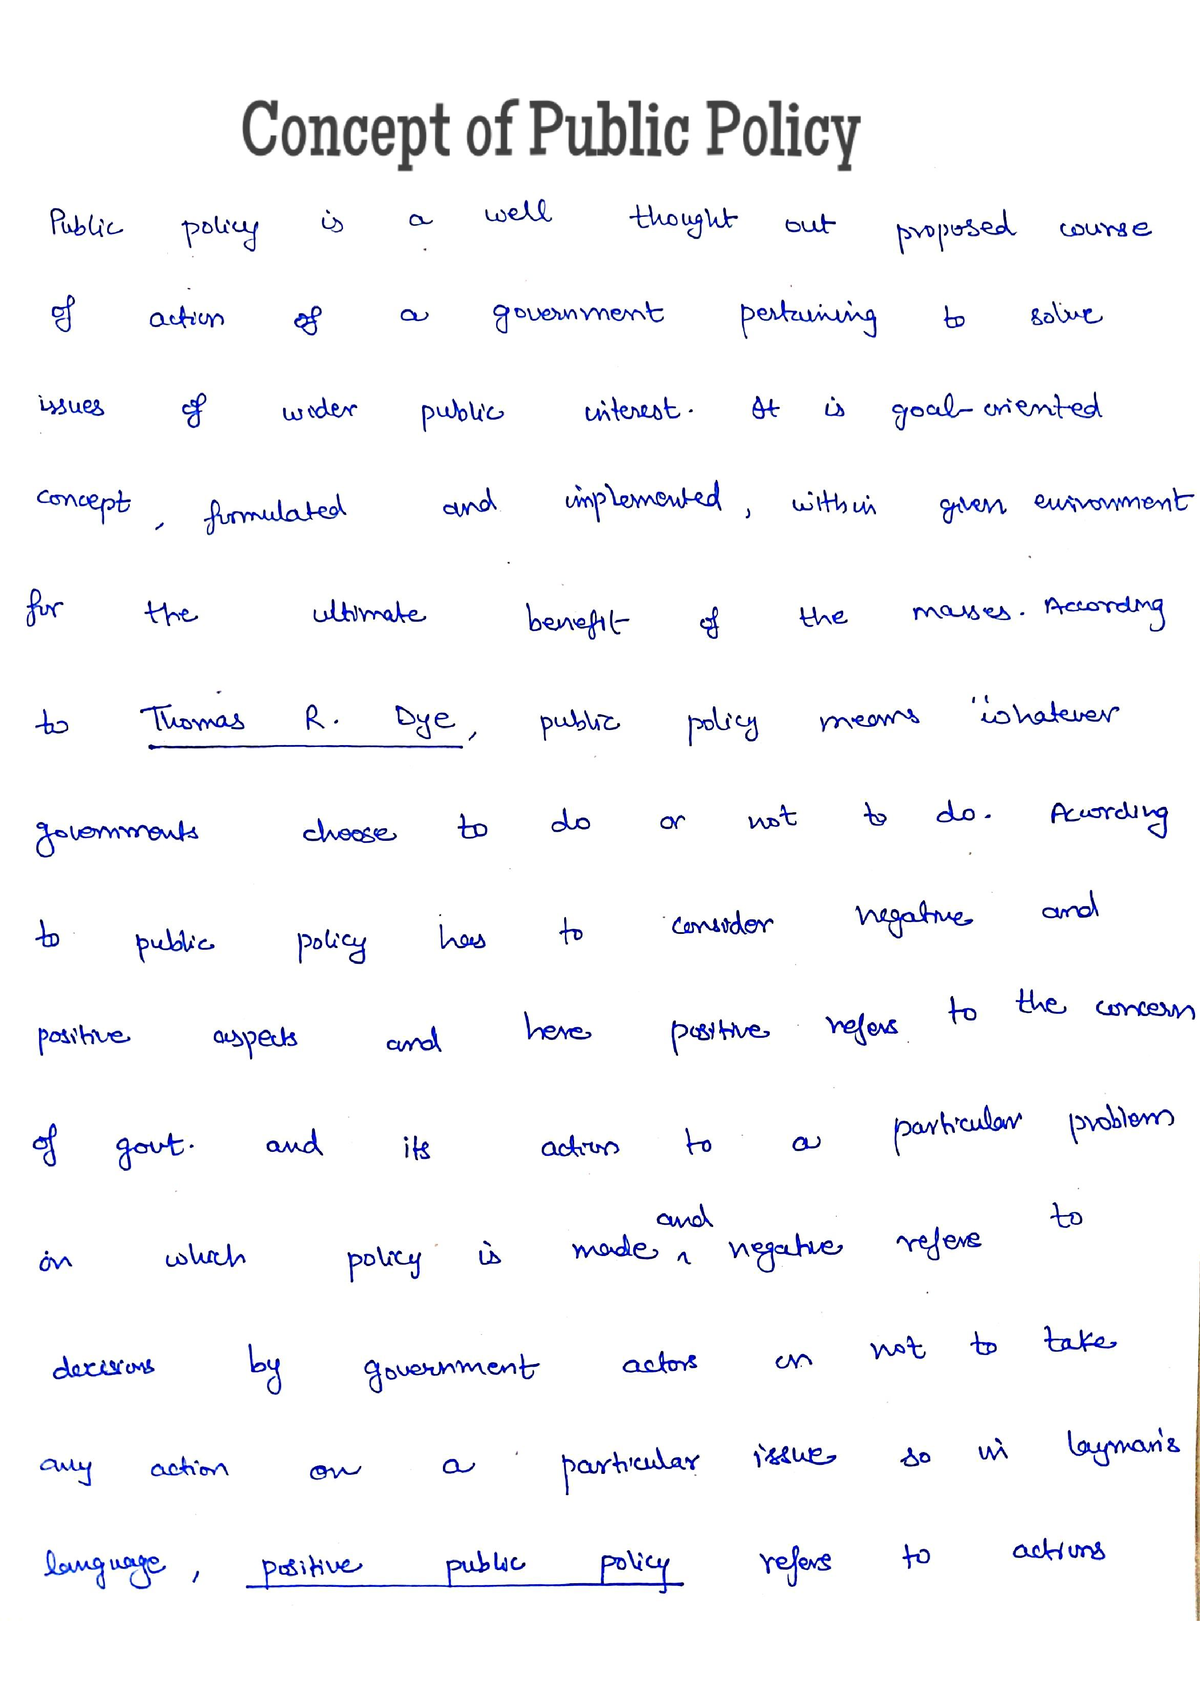 Concept of Public Policy
Public policy is a well thought out proposed course
of action of a government pertaining to solve
issues of wider public interest. It is goal-oriented
concept, formulated and implemented, within given environment
for the ultimate benefit of the masses. According
to Thomas R. Dye, public policy means "whatever
governments choose to do or not to do. According
to public policy has to consider negative and
positive aspects and here positive refers to the concern
of govt. and its action to a particular problem
on which policy is made and negative refers to
decisions by government actors on not to take
any action on a particular issue so in layman's
language, positive public policy refers to actions